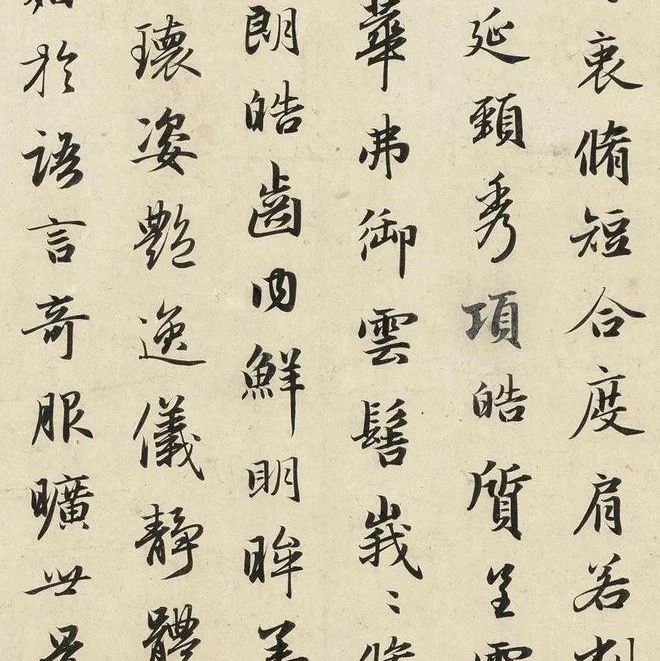 衷脩短合度肩若削
延頸秀項皓質呈露
華弗御雲髻峩〻脩
朗皓齒内鮮明眸善
瓌姿艷逸儀靜體
於語言奇服曠世